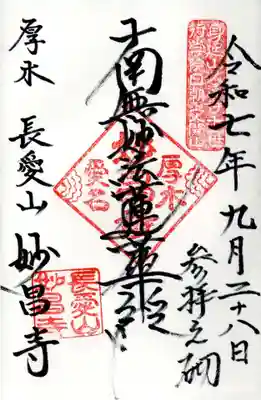 令和七年九月二十八日
参拝之砌
南無妙法蓮華経
厚木 長愛山 妙昌寺
厚木
愛名
長愛山
妙昌寺